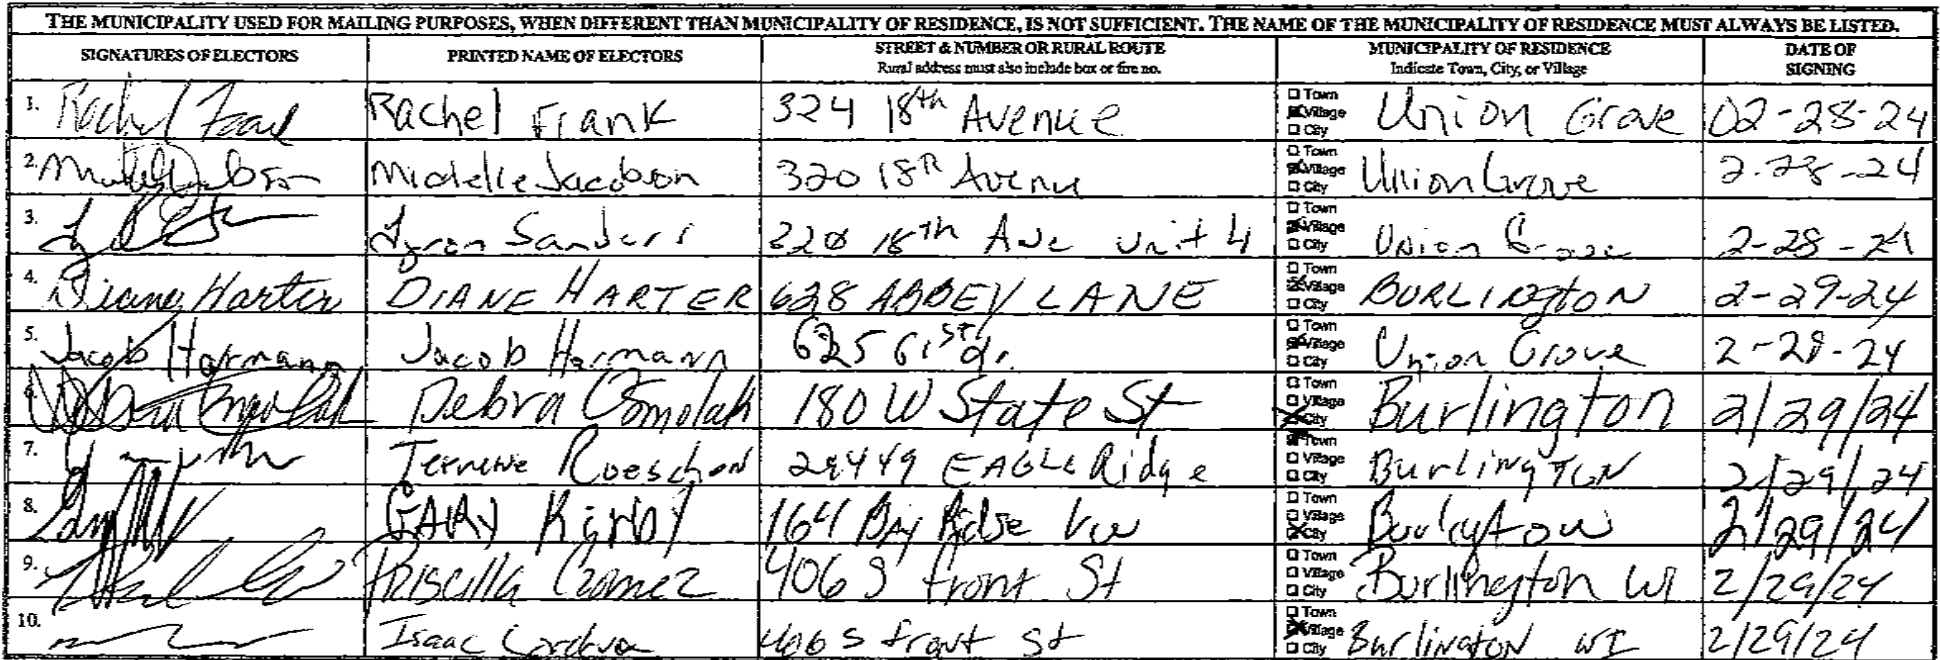 THE MUNICIPALITY USED FOR MAILING PURPOSES, WHEN DIFFERENT THAN MUNICIPALITY OF RESIDENCE, IS NOT SUFFICIENT. THE NAME OF THE MUNICIPALITY OF RESIDENCE MUST ALWAYS BE LISTED.
SIGNATURES OF ELECTORS PRINTED NAME OF ELECTORS STREET & NUMBER OR RURAL ROUTE Rural address must also include box or fire no. MUNICIPALITY OF RESIDENCE Indicate Town, City, or Village DATE OF SIGNING
1. Rachel Rachel Frank 324 18th Avenue Town Village City Union Grove 02-28-24
2. Michelle Jacobson 320 18th Avenu Town Village City Union Grove 2-28-24
3. Sanders 320 18th Ave Unit 4 Town Village City Union Grove 2-28-24
4. Diane Harter DIANE HARTER 628 ABBEY LANE Town Village City BURLINgtON 2-29-24
5. Jacob Harmann Jacob Harmann 625 61st dr. Town Village City Union Grove 2-29-24
6. Debra 180 W State St Town Village City Burlington 2/29/24
7. 29449 EAGLE Ridge Town Village City BurlingTON 2/29/24
8. GARY 164 Town Village City 2/29/24
9. PRISCILLA 406 S front St Town Village City Burlington WI 2/29/24
10. Isaac 406 S front St Town Village City Burlington WI 2/29/24